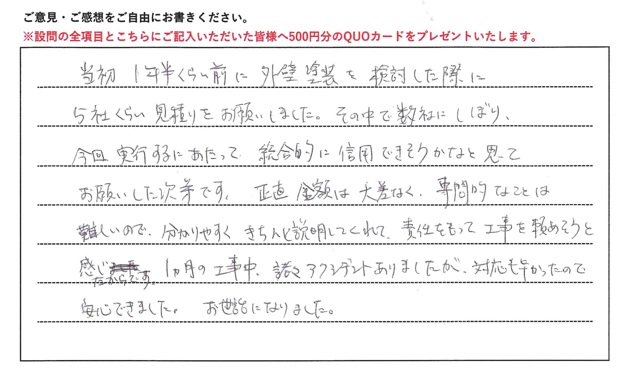 ご意見・ご感想をご自由にお書きください。
※設問の全項目とこちらにご記入いただいた皆様へ500円分のQUOカードをプレゼントいたします。
当初 1年半くらい前に 外壁塗装を検討した際に
5社くらい見積りをお願いしました。その中で数社にしぼり、
今回実行するにあたって 総合的に信用できそうかなと思って
お願いした次第です。正直 金額は大差なく、専問的なことは
難しいので、分かりやすく きちんと説明してくれて、責任をもって工事を頼めそうと
感じたからです。1ヵ月の工事中、諸々アクシデントありましたが、対応も早かったので
安心できました。 お世話になりました。